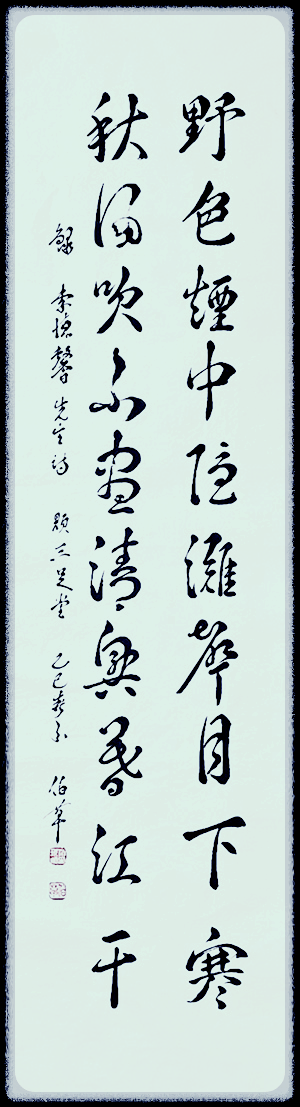 野色煙中隱灘聲月下寒
秋吹不盡清興暮江干
錄 馨先生詩 題三足堂 乙巳春 伯華